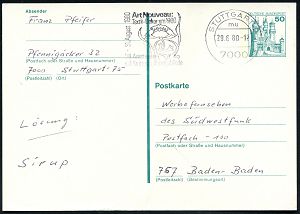 Absender
Franz Pfeifer
Pfennigäcker 32
(Postfach oder Straße und Hausnummer)
7000 Stuttgart-75
(Postleitzahl) (Ort)
Art Nouveau:
STUTTGART
mu
29.8.80-12
7000
DEUTSCHE BUNDESPOST
50
Lösung:
Sirup
Postkarte
Werbefernsehen
des Südwestfunk
Postfach - 100
(Postfach oder Straße und Hausnummer)
757 Baden-Baden
(Postleitzahl) (Bestimmungsort)